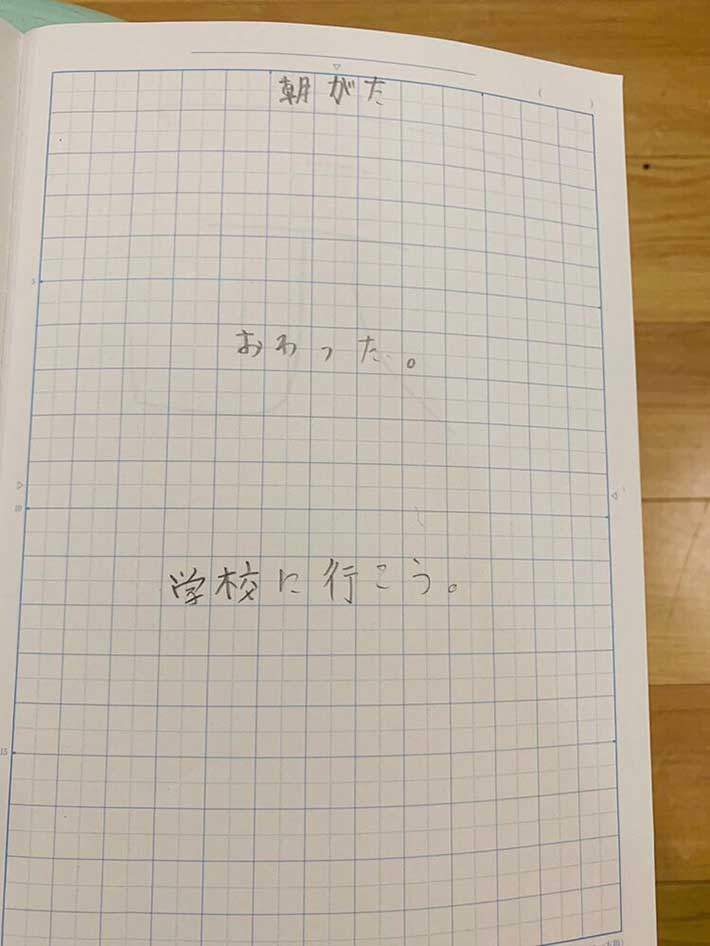 朝がた
おわった。
学校に行こう。
5
10
15